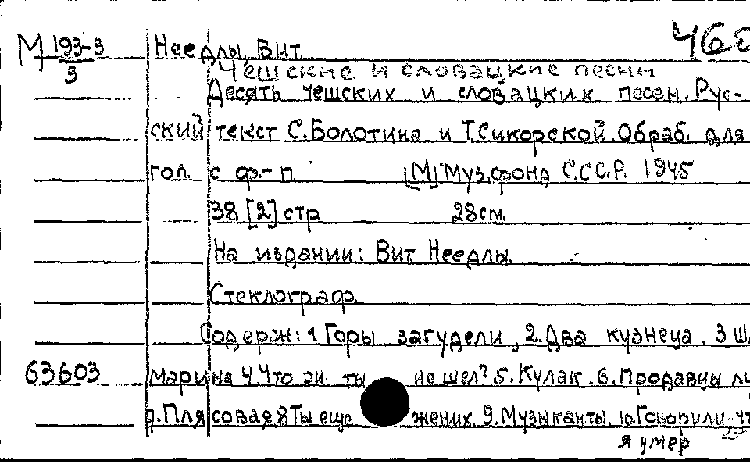 М 193-3 Неедлы, Вит. 468
3 Чешские и словацкие песни
Десять чешских и словацких песен. Рус-
ский текст С.Болотина и Т.Сикорской. Обраб. для
гол. с ф.-п. [М] Музфонд С.С.С.Р. 1945
38 [2] стр 28 см.
На издании: Вит Неедлы.
Стеклограф.
Содерж: 1. Горы загудели, 2. Два кузнеца. 3
63603 марина 4. Что ж ты не шел? 5. Кулак. 6. Продавцы
Плясовая 8 Ты еще жених. 9. Музыканты. 10. Говорили, чт
я умер